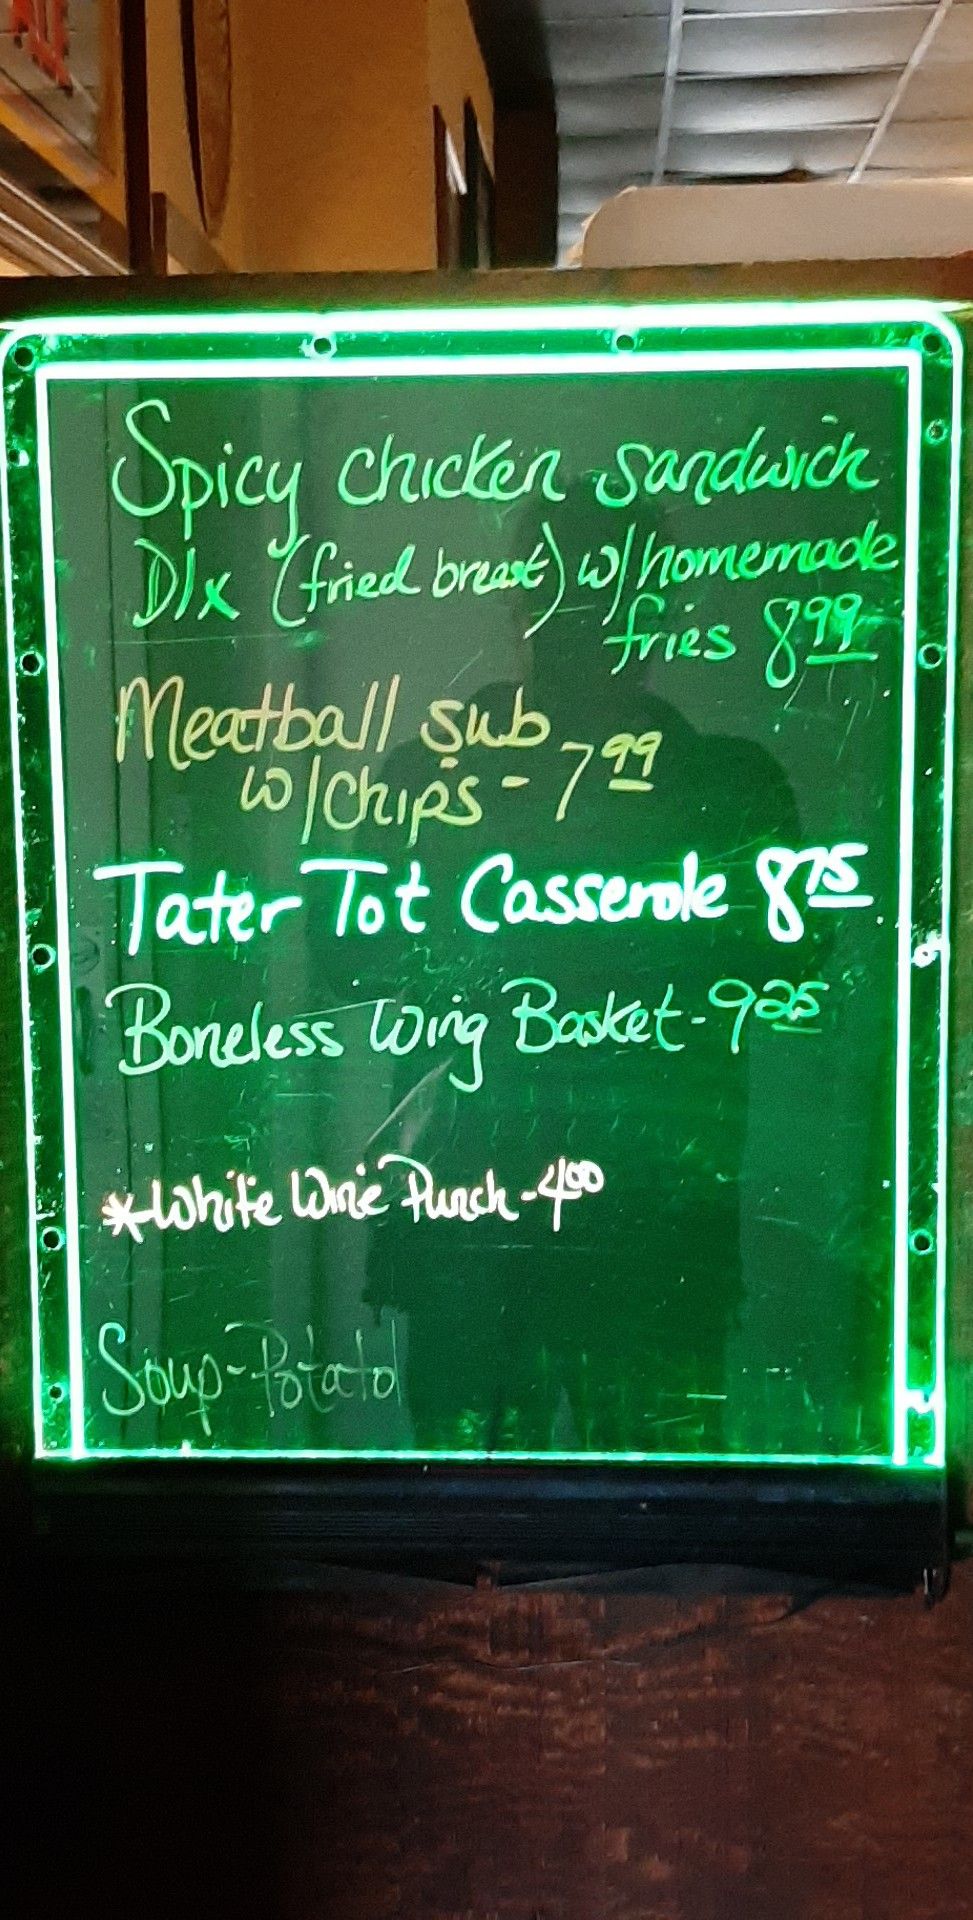 Spicy chicken sandwich
Dlx (fried breast) w/homemade
fries 8 99
Meatball sub
w/chips - 7 99
Tater Tot Casserole 8 75
Boneless Wing Basket - 9 25
*White Wine Punch - 4 00
Soup - Potato